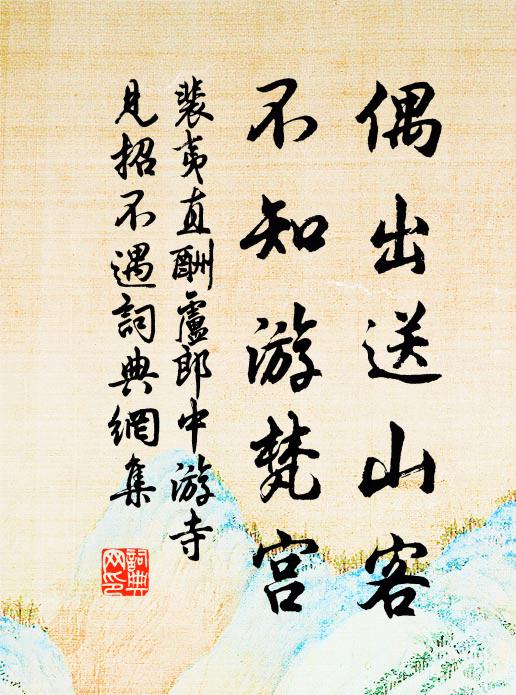 偶出送山客
不知游梵宫
裴夷直酬盧郎中游寺
見招不遇詞典網集
詞典